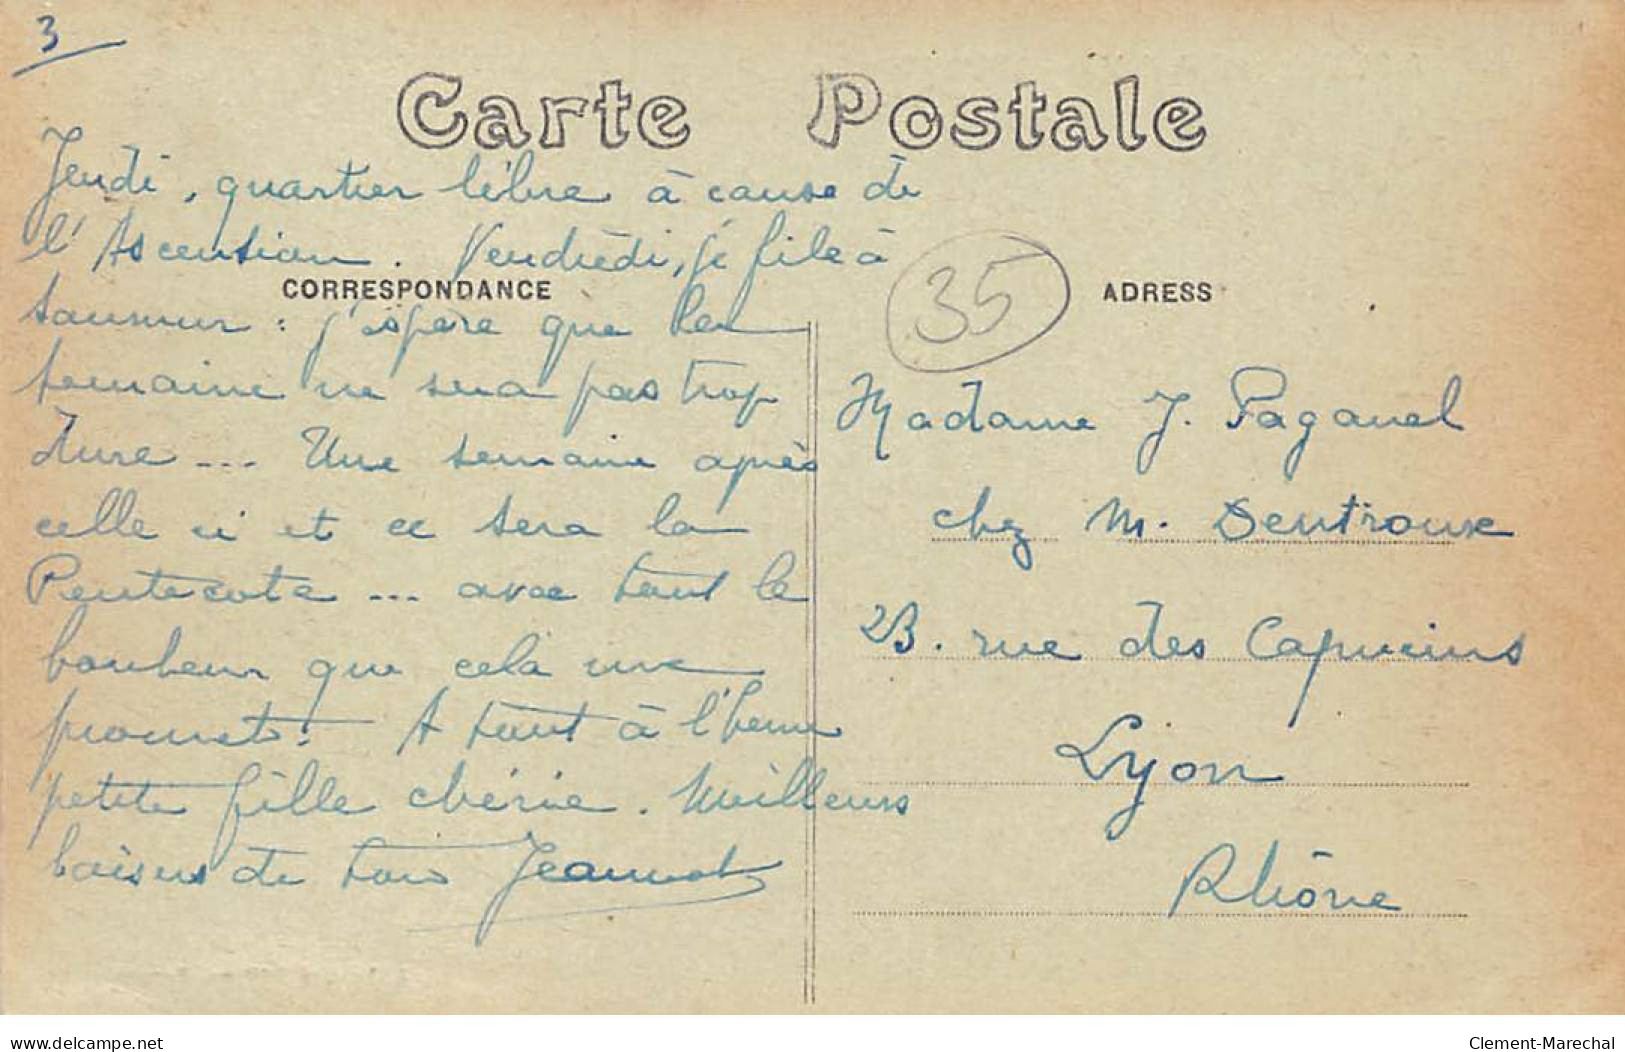 3
Carte Postale
Jeudi, quartier libre à cause de
l'Ascension. Vendredi, je file à
CORRESPONDANCE
Saumur : j'espère que la
semaine ne sera pas trop
dure --- Une semaine après
celle ci et ce sera la
Pentecote --- avec tout le
bonheur que cela me
promet. A tout à l'heure
petite fille chérie. Meilleurs
baisers de ton Jeannot
35
ADRESS
Madame J. Paganel
chez M. Dentroux
23. rue des Capucins
Lyon
Rhône
delcampe.net
Clement-Marechal